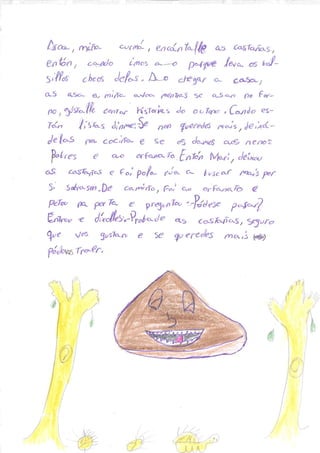 miña curmá, encántalle as castañas,
entón, cando imos a—o parque leva os bol-
sillos cheos delas. Ao chegar a casa,
as asa a miña avoa mentras se asan no for-
no, gústalle contar historias do outono. Cando es-
tán listas dinme: Se non queredes máis, deixá-
delas na cociña e se os damos aos nenos
Pobres e ao orfanato Entón Mari, deixou
as castañas e foi pola rúa a buscar máis por
si sobrasen. De camiño, foi ao orfanato e
petou na porta e pregunta -Pódese pasar?
Entrou e díxolles:-Probade as castañas, seguro
que vos gustan e se queredes máis
pódovos traer.